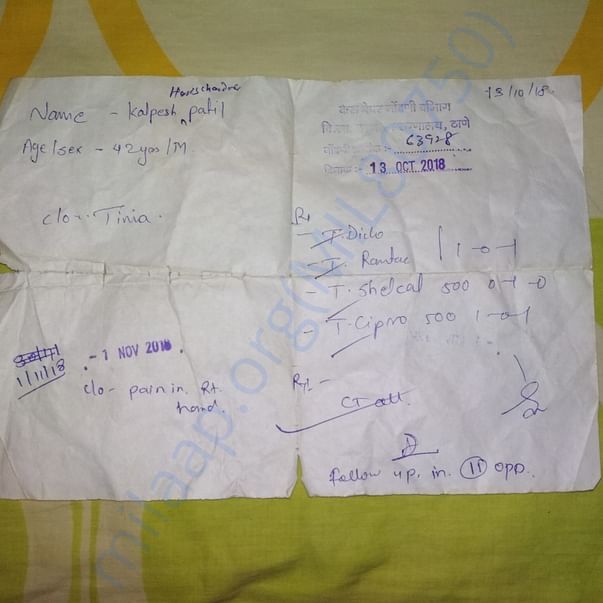 Harischandra
Name - Kalpesh patil
Age/sex - 42yos/M
c/o - Tinia.
- 1 NOV 2018 .
1/11/18
c/o - pain in. Rt.
hand.
13/10/18
केस पेपर नोंदणी विभाग
ठाणे
63928
दिनांक :- 13 OCT 2018
Rx
- T. Diclo
- T. Rantac 1-0-1
- T. Shelcal 500 0-1-0
- T. Cipro 500 1-0-1
Rx -
CT all.
Follow up. in. 11 OPD.
milaap.org(MIL80750)